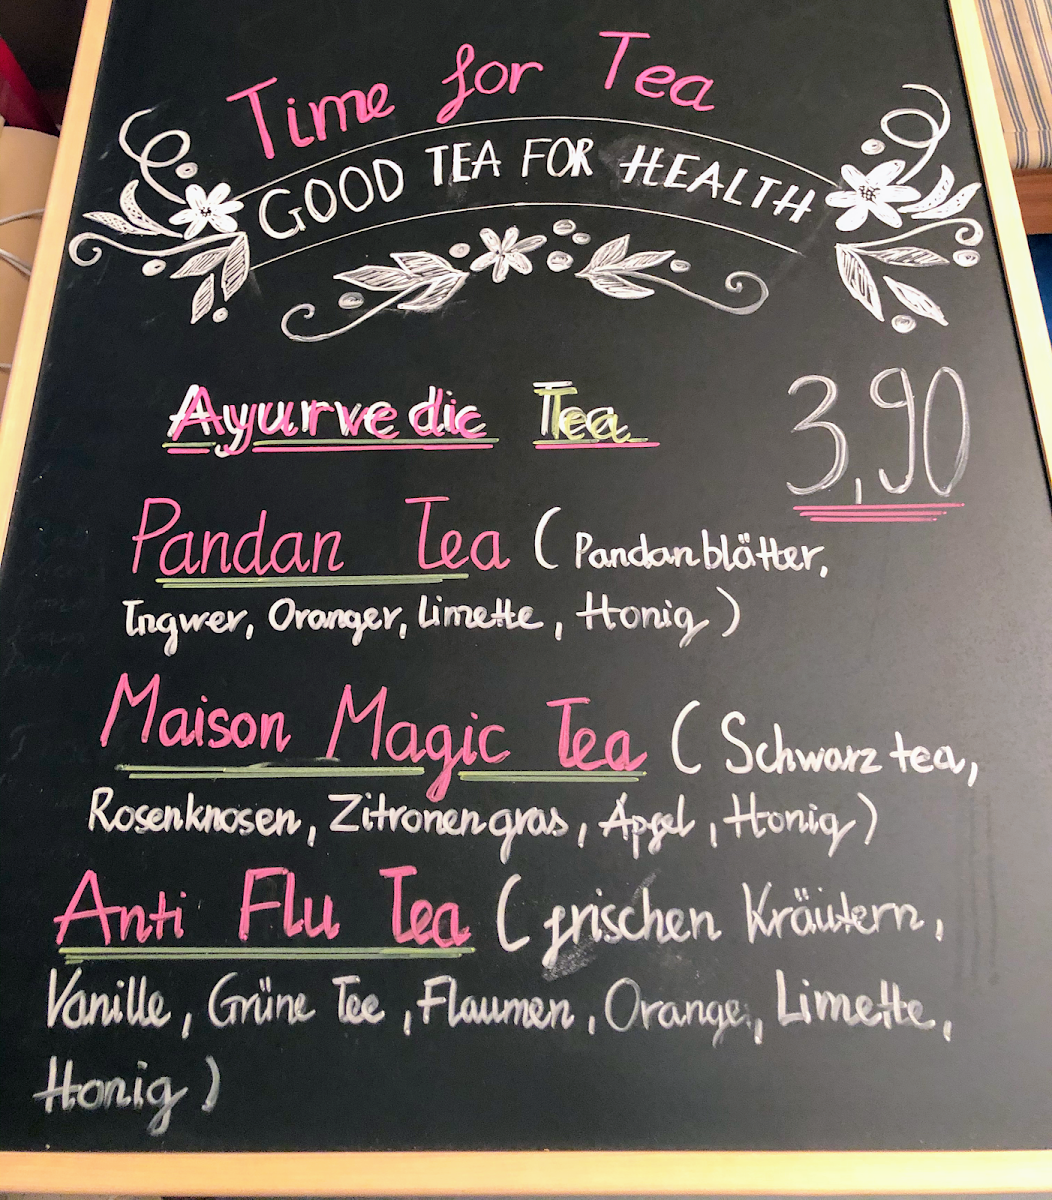 Time for Tea
GOOD TEA FOR HEALTH
Ayurvedic Tea 3,90
Pandan Tea ( Pandanblätter,
Ingwer, Oranger, Limette, Honig )
Maison Magic Tea ( Schwarz tea,
Rosenknosen, Zitronengras, Apgel, Honig )
Anti Flu Tea ( frischen Kräutern,
Vanille, Grüne Tee, Flaumen, Orange, Limette,
Honig )